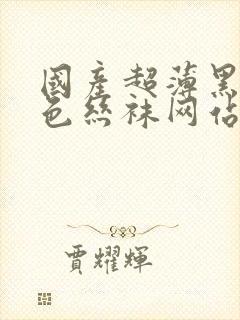 國產超薄黑
色絲袜网佔
賈耀輝